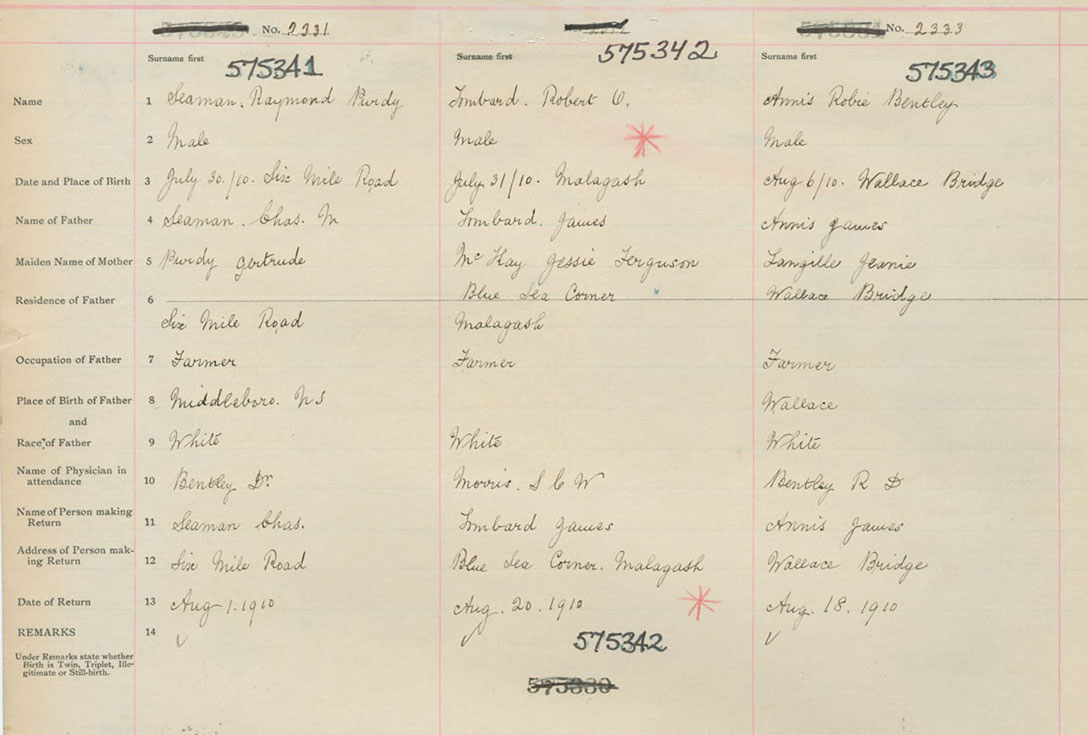 No. 2331
No. 2333
Surname first 575341
Surname first 575342
Surname first 575343
Name 1 Seaman. Raymond Purdy
Lombard. Robert O.
Annis Robie Bentley
Sex 2 Male
Male
Male
Date and Place of Birth 3 July 30./10. Six Mile Road
July 31/10. Malagash
Aug 6/10. Wallace Bridge
Name of Father 4 Seaman. Chas. M
Lombard. James
Annis James
Maiden Name of Mother 5 Purdy Gertrude
McKay Jessie Ferguson
Langille Jeanie
Residence of Father 6
Six Mile Road
Blue Sea Corner
Malagash
Wallace Bridge
Occupation of Father 7 Farmer
Farmer
Farmer
Place of Birth of Father 8 Middleboro. N S
Wallace
and
Race of Father 9 White
White
White
Name of Physician in
attendance 10 Bentley Dr
Morris. S C W
Bentley R D
Name of Person making
Return 11 Seaman Chas.
Lombard James
Annis James
Address of Person mak-
ing Return 12 Six Mile Road
Blue Sea Corner. Malagash
Wallace Bridge
Date of Return 13 Aug 1. 1910
Aug. 20. 1910
Aug. 18. 1910
REMARKS 14
575342
Under Remarks state whether
Birth is Twin, Triplet, Ille-
gitimate or Still-birth.
575330